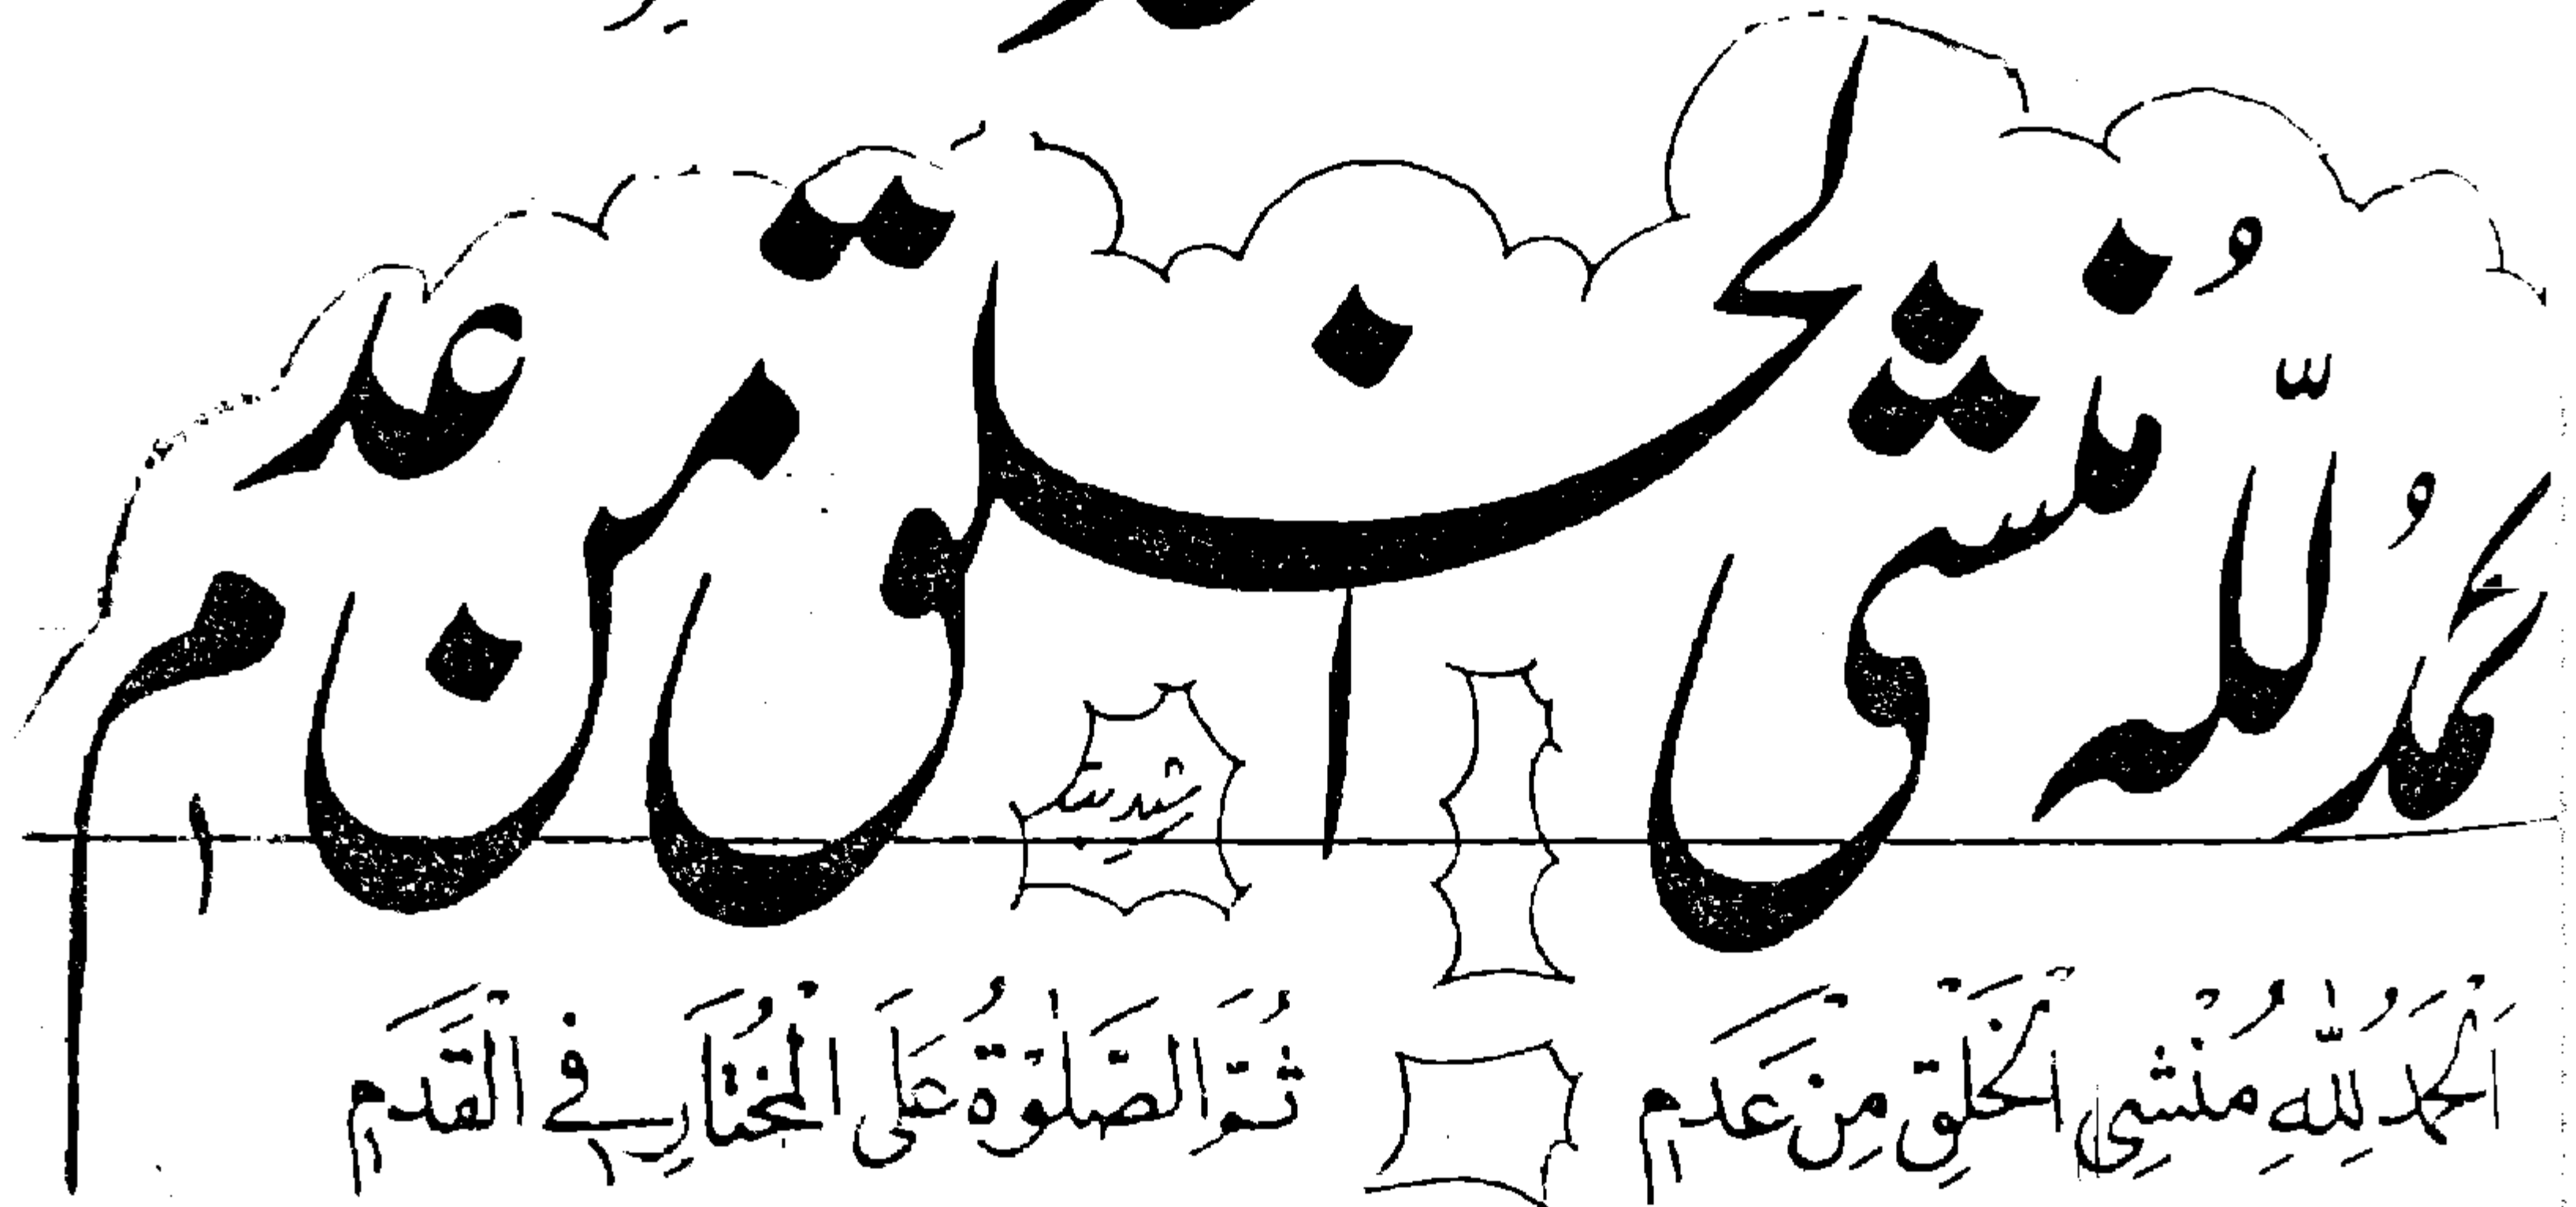 الحمد لله منشی الخلق من عدم
اَلْحَمْدُ لِلّٰهِ مُنْشِی الْخَلْقِ مِنْ عَدَمٍ
ثُمَّ الصَّلٰوةُ عَلَی الْمُخْتَارِ فِی الْقَدَمِ